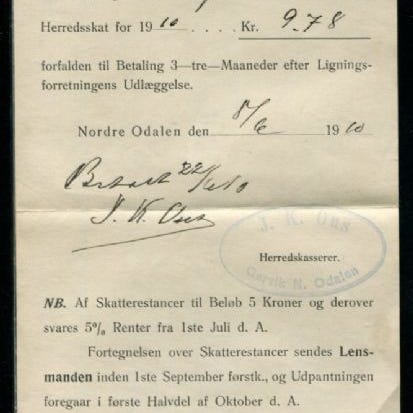 Herredsskat for 1910 . . . . Kr. 9.78
forfalden til Betaling 3—tre—Maaneder efter Lignings-
forretningens Udlæggelse.
Nordre Odalen den 8/6 1910
Betalt 22/6 10
J. K. Ous
J. K. Ous
Herredskasserer.
N. Odalen
NB. Af Skatterestancer til Beløb 5 Kroner og derover
svares 5% Renter fra 1ste Juli d. A.
Fortegnelsen over Skatterestancer sendes Lens-
manden inden 1ste September førstk., og Udpantningen
foregaar i første Halvdel af Oktober d. A.